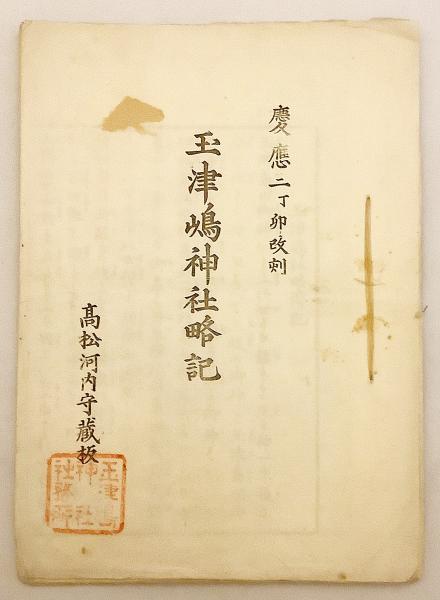 慶應二丁卯改刻
玉津嶋神社略記
髙松河内守蔵板
玉津島
神社
社務所